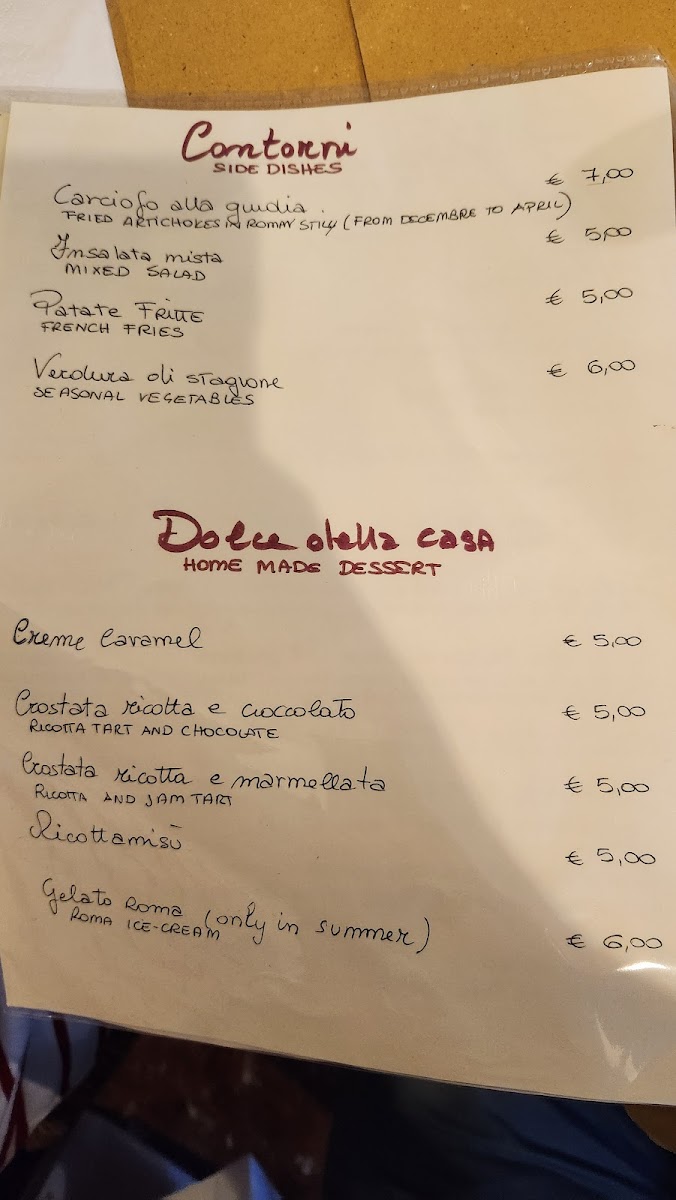 Contorni
SIDE DISHES
Carciofo alla guidia. € 7,00
FRIED ARTICHOKES IN ROMAN STILY (FROM DECEMBRE TO APRIL)
Insalata mista € 5,00
MIXED SALAD
Patate FRITTE € 5,00
FRENCH FRIES
Verdura di STAGIONE € 6,00
SEASONAL VEGETABLES
Dolce della CASA
HOME MADE DESSERT
Creme Caramel € 5,00
Crostata ricotta e cioccolato € 5,00
RICOTTA TART AND CHOCOLATE
Crostata ricotta e marmellata € 5,00
RICOTTA AND JAM TART
Ricottamisù € 5,00
Gelato ROMA (only in summer) € 6,00
ROMA ICE-CREAM